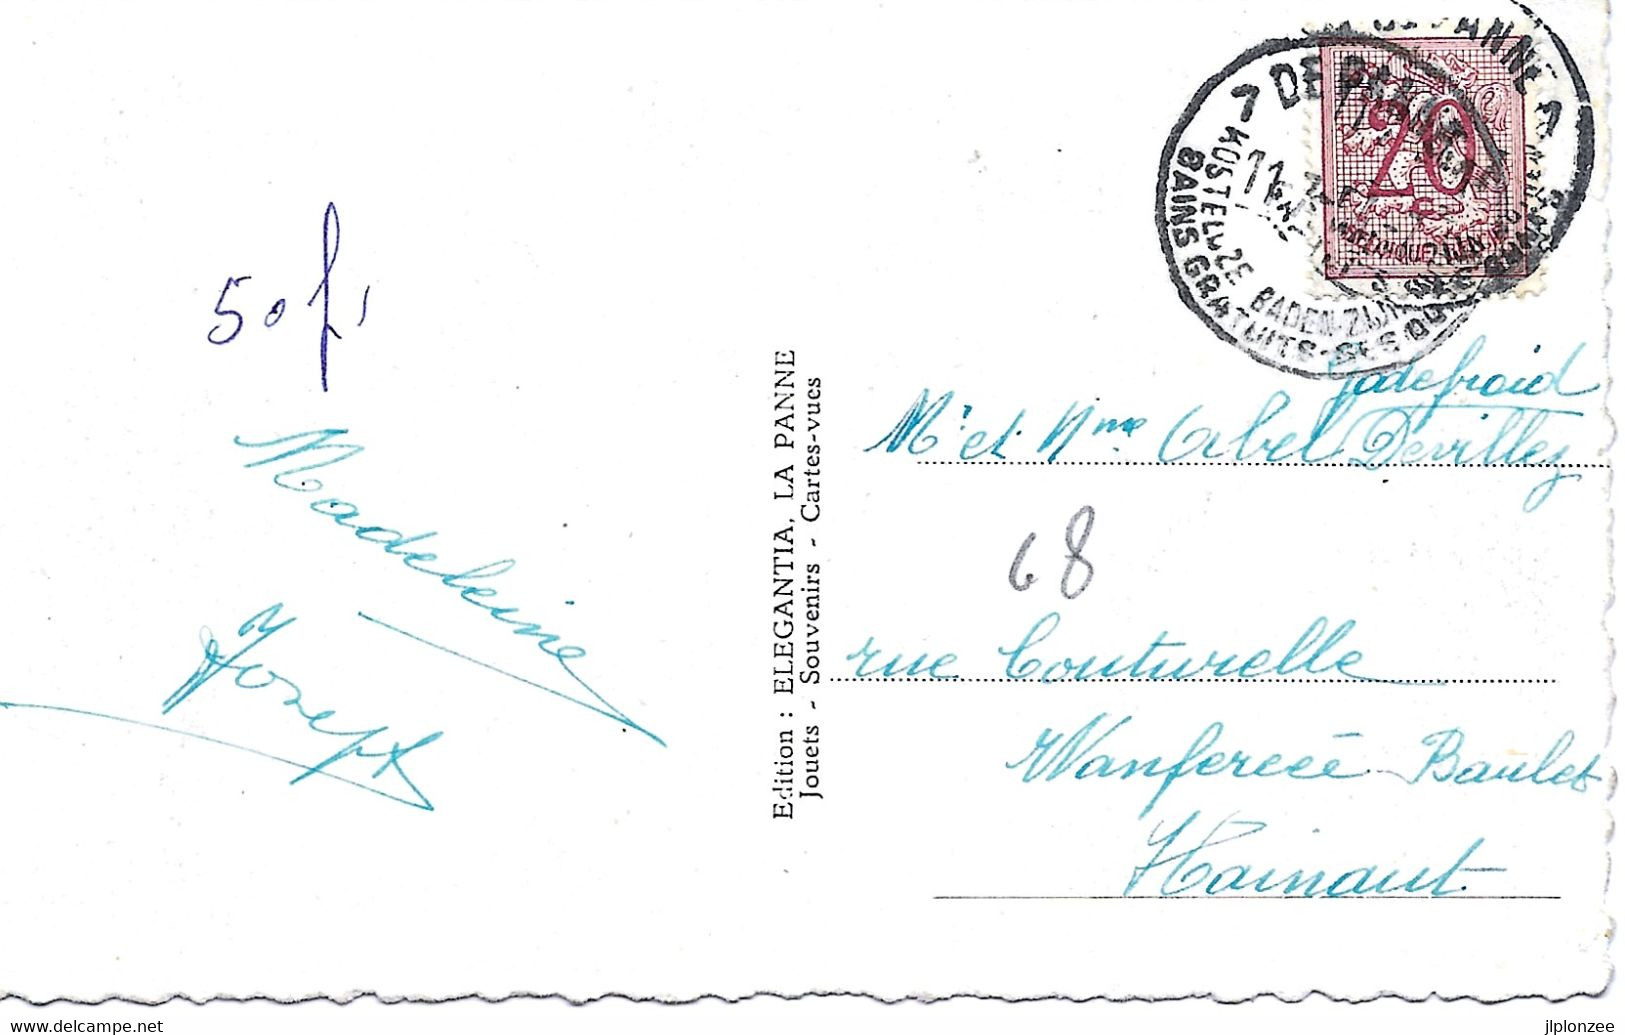 50 f,
Madeleine
Joseph
Edition : ELEGANTIA, LA PANNE
Jouets - Souvenirs - Cartes-vues
DE PANNE
KOSTELOZE BADEN-ZIJN
BAINS GRATUITS-SES DUNES
11
20
BELGIQUE-BELGIE
Godefroid
Mr et Mme Abel Devillez
68
rue Couturelle
Wanfercée Baulet
Hainaut
www.delcampe.net
jlplonzee